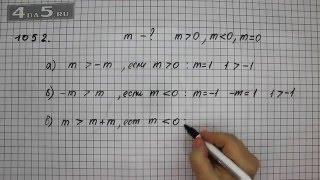 4DA5.RU
1052. m - ? m>0, m<0, m=0
а) m > -m, если m>0 : m=1 1>-1
б) -m > m, если m<0 : m=-1 -m=1 1>-1
в) m > m+m, есл m<0 :